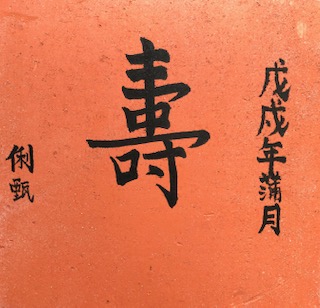 戊戌年蒲月
壽
俐甄